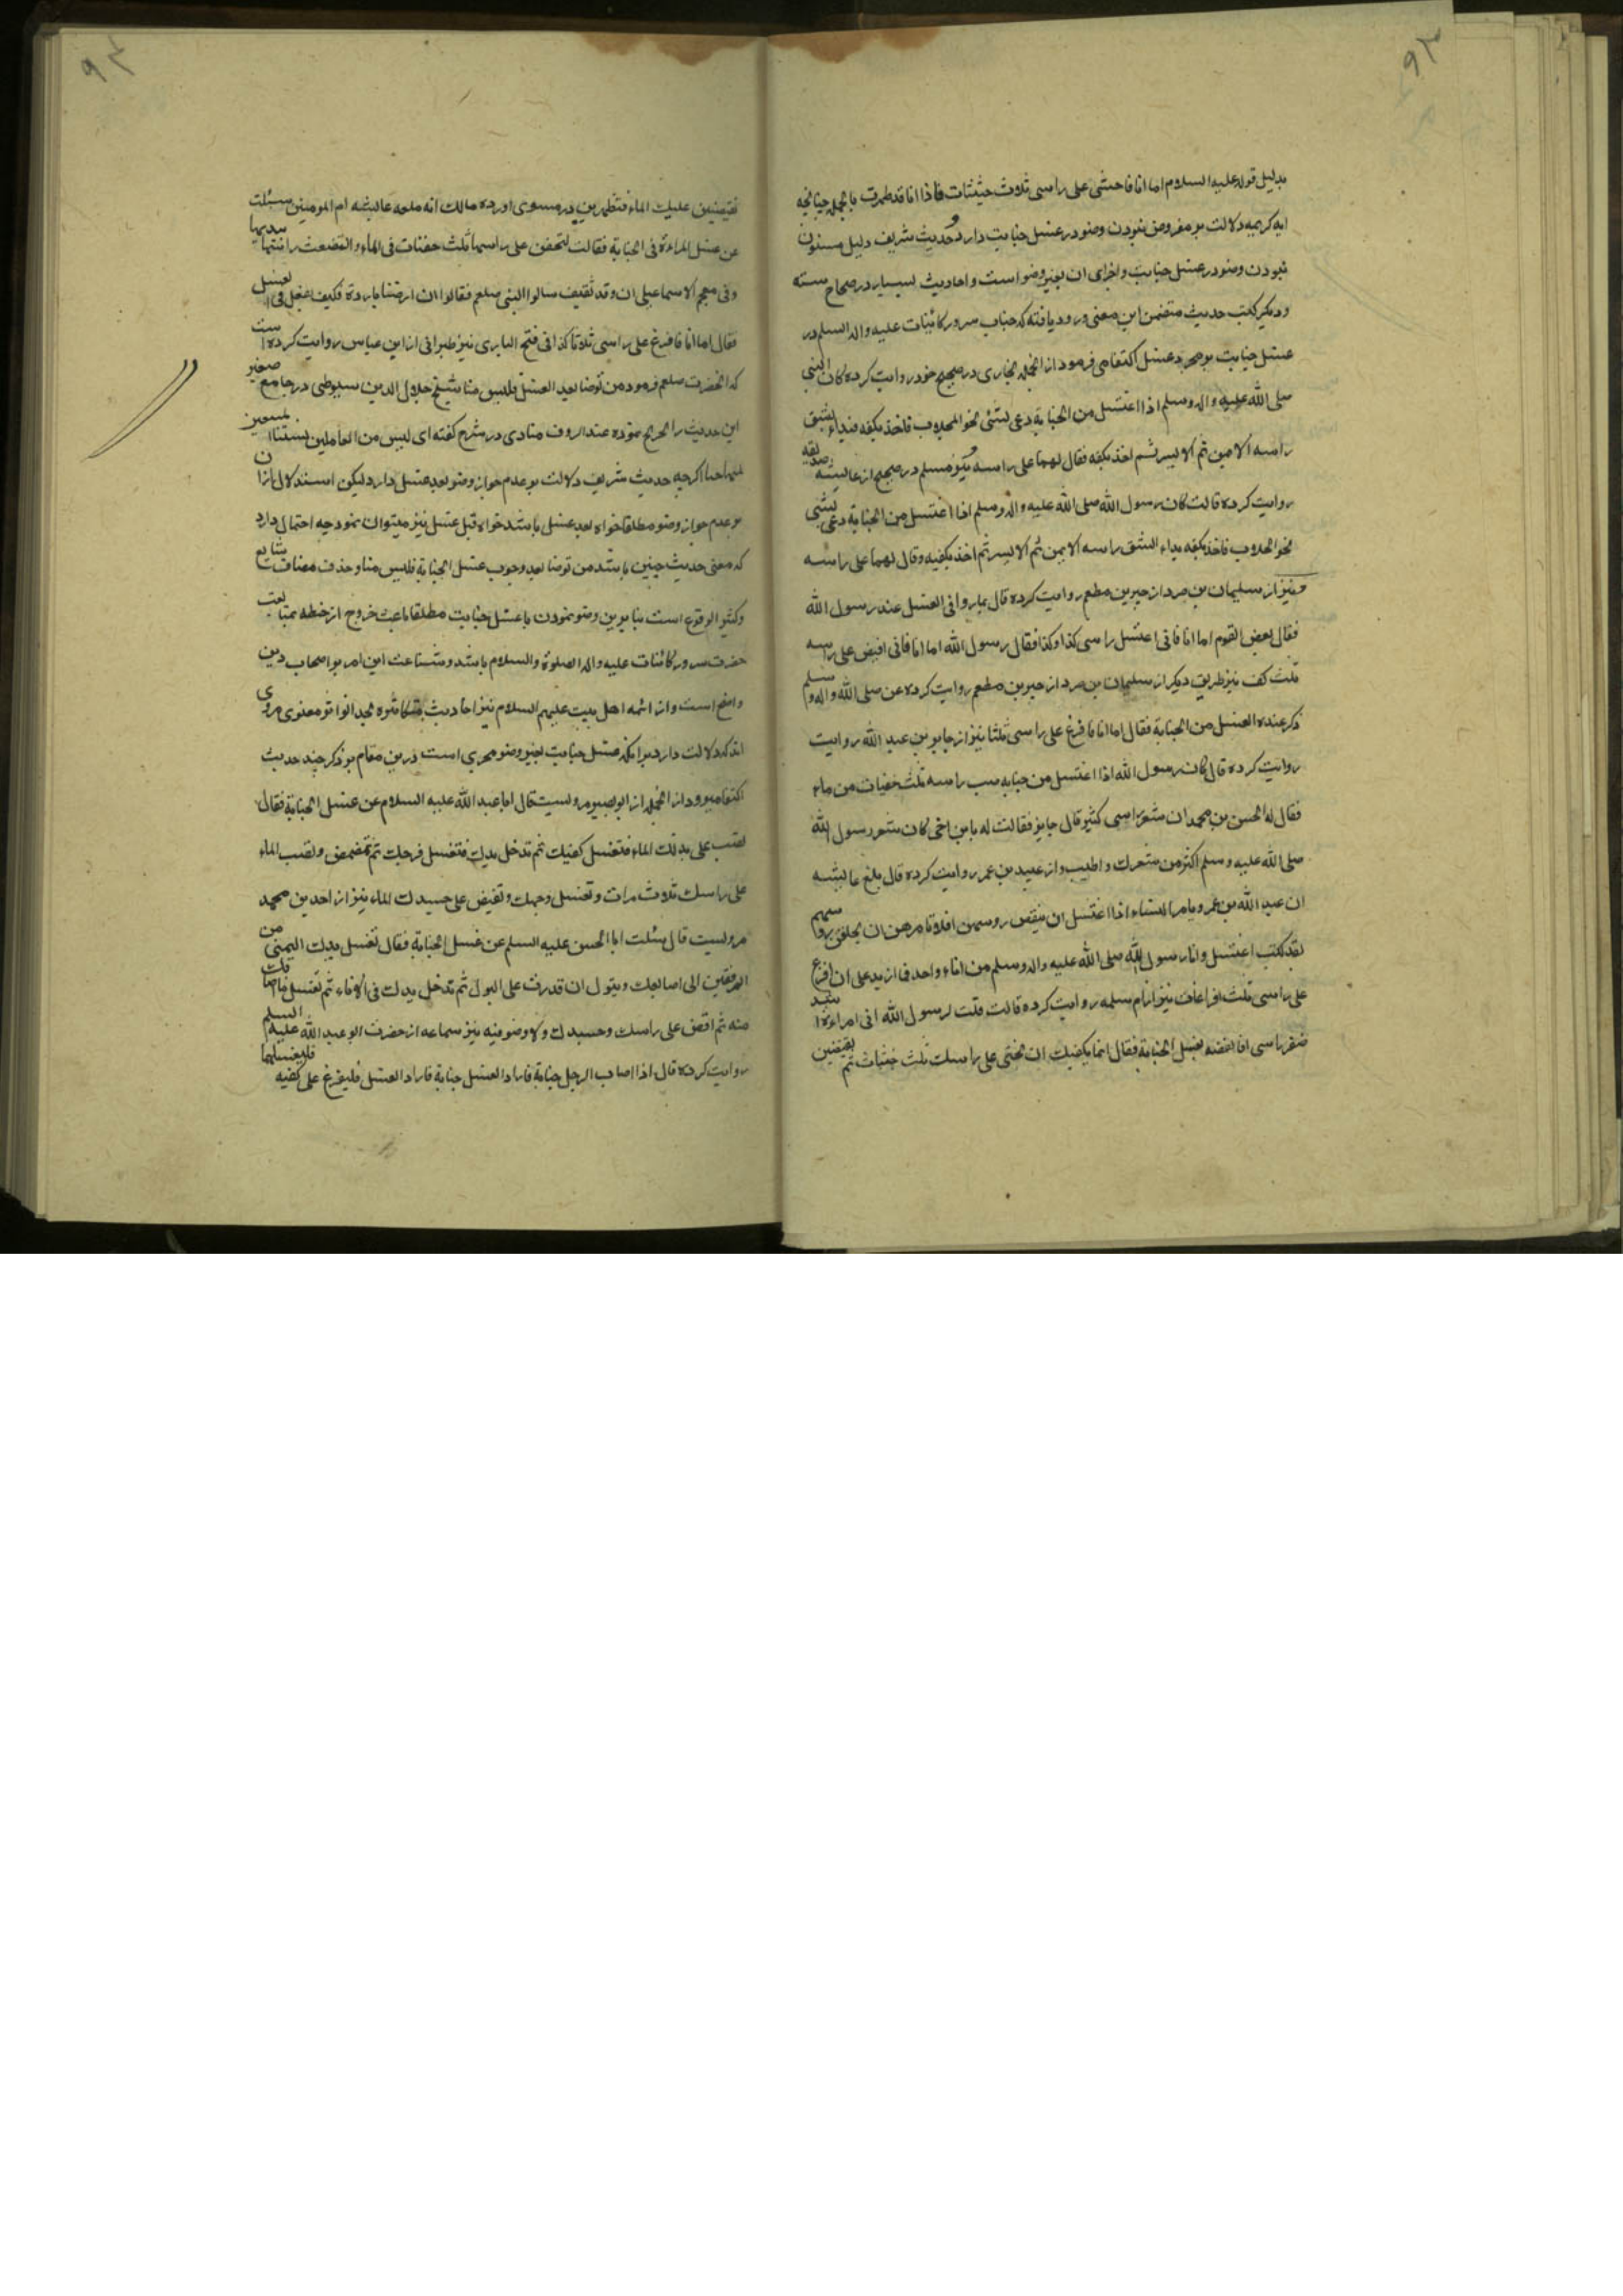 ۹۳
بدلیل قوله علیه السلام اما انا فاحثی علی راسی ثلاث حثیثات فاذا انا قد طهرت بالجمله چنانچه
ایه کریمه دلالت بر مفروض نبودن وضو در غسل جنابت دارد و حدیث شریف دلیل مسنون
نبودن وضو در غسل جنابت و اجزای ان بغیر وضو است و احادیث بسیار در صحاح سته
و دیگر کتب حدیث متضمن این معنی ورود یافته که جناب سرور کائنات علیه و اله السلم در
غسل جنابت بر مجرد غسل اکتفا می فرمود از انجمله بخاری در صحیح خود روایت کرده کان النبی
صلی الله علیه و اله وسلم اذا اغتسل من الجنابة دعی بشئی نحو الحلاب فاخذ بکفه فبداء بشق
راسه الایمن ثم الایسر ثم اخذ بکفه فقال بهما علی راسه و نیز مسلم در صحیح از عایشه صدیقه
روایت کرده قالت کان رسول الله صلی الله علیه و اله وسلم اذا اغتسل من الجنابة دعی بشئی
نحو الحلاب فاخذ بکفه بداء الشق راسه الایمن ثم الایسر ثم اخذ بکفیه وقال بهما علی راسه
و نیز از سلیمان بن صرد از جبیر بن مطعم روایت کرده قال تماروا فی الغسل عند رسول الله
فقال بعض القوم اما انا فانی اغتسل راسی کذا وکذا فقال رسول الله اما انا فانی افیض علی راسه
ثلث کف نیز بطریق دیگر از سلیمان بن صرد از جبیر بن مطعم روایت کرده عن صلی الله و اله وسلم
ذکر عنده الغسل من الجنابة فقال اما انا فافرغ علی راسی ثلثا نیز از جابر بن عبد الله روایت
روایت کرده قال کان رسول الله اذا اغتسل من جنابه صب راسه ثلث حفنات من ماء
فقال له الحسن بن محمد ان شعر راسی کثیر قال جابر فقالت له یابن اخی کان شعر رسول الله
صلی الله علیه وسلم اکثر من شعرک و اطیب و از عبید بن عمر روایت کرده قال بلغ عایشه
ان عبد الله بن عمر و یامر النساء اذا اغتسل ان ینقض روسهن افلا تامرهن ان یحلقن روسهم
لقد کنت اغتسل وانا رسول الله صلی الله علیه و اله وسلم من اناء واحد فما ازید علی ان افرغ
علی راسی ثلث افراغات نیز از ام سلمه روایت کرده قالت قلت لرسول الله انی امراءة اشد
ضفر راسی افانقضه لغسل الجنابة فقال انما یکفیک ان تحثی علی راسک ثلث حثیات ثم تفیضین
۹۴
تفیضین علیک الماء فتطهرین در مسوی اورده مالک انه بلغه عایشه ام المومنین سئلت
عن غسل المراءة فی الجنابة فقالت لتحفن علی راسها ثلث حفنات فی الماء و لتضغث راسها بیدیها
وفی معجم الاسماعیلی ان وفد ثقیف سالوا النبی صلعم فقالوا ان ارضنا باردة فکیف نفعل فی الغسل
فقال اما انا فافرغ علی راسی ثلاثا کذا فی فتح الباری نیز طبرانی از ابن عباس روایت کرده است
که انحضرت صلعم فرمود من توضا بعد الغسل فلیس منا شیخ جلال الدین سیوطی در جامع صغیر
این حدیث را تخریج نموده عبد الروف مناوی در شرح گفته ای لیس من العاملین بسنتنا المتبعین
لمنهاجنا اگرچه حدیث شریف دلالت بر عدم جواز وضو بعد غسل دارد لیکن استدلال ازان
بر عدم جواز وضو مطلقا خواه بعد غسل باشد خواه قبل غسل نیز میتوان نمود چه احتمال دارد
که معنی حدیث چنین باشد من توضا بعد وجوب غسل الجنابة فلیس منا و حذف مضاف شایع
و کثیر الوقوع است بنابرین وضو نمودن با غسل جنابت مطلقا باعث خروج از خطه متابعت
حضرت سرور کائنات علیه و اله الصلوة والسلام باشد و شناعت این امر بر اصحاب دین
واضح است و از ائمه اهل بیت علیهم السلام نیز احادیث متکاثره بحد تواتر معنوی مروی
اند که دلالت دارد برانکه غسل جنابت بغیر وضو مجزی است درین مقام بر ذکر چند حدیث
اکتفا میرود از انجمله از ابو بصیر مرویست قال ابا عبد الله علیه السلام عن غسل الجنابة فقال
تصب علی یدک الماء فتغسل کفیک ثم تدخل یدک فتغسل فرجک ثم تمضمض و تصب الماء
علی راسک ثلاث مرات و تغسل وجهک و تفیض علی جسدک الماء نیز از احمد بن محمد
مرویست قال سئلت ابا الحسن علیه السلم عن غسل الجنابة فقال تغسل یدک الیمنی من
المرفقین الی اصابعک و تبول ان قدرت علی البول ثم تدخل یدک فی الاناء ثم تغسل ما اصابک
منه ثم افض علی راسک وجسدک ولا وضو فیه نیز سماعه از حضرت ابو عبد الله علیه السلم
روایت کرده قال اذا اصاب الرجل جنابة فاراد الغسل جنابة فاراد الغسل فلیفرغ علی کفیه فلیغسلهما